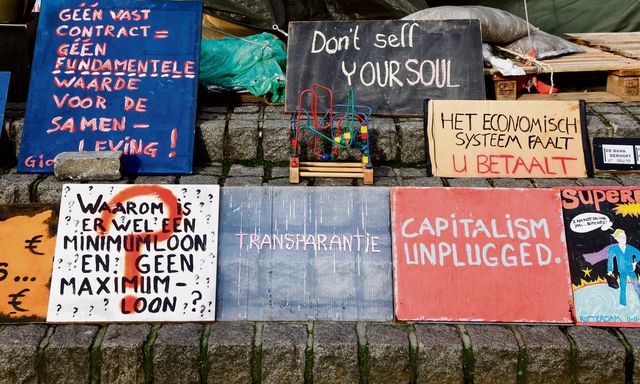 GÉÉN VAST
CONTRACT =
GÉÉN
FUNDAMENTELE
WAARDE
VOOR DE
SAMEN-
LEVING!
Don't sell
YOUR SOUL
HET ECONOMISCH
SYSTEEM FAALT
U BETAALT
DE BANK
€
S...
€
WAAROM IS
ER WEL EEN
MINIMUMLOON
EN GEEN
MAXIMUM-
LOON?
?
TRANSPARANTIE
CAPITALISM
UNPLUGGED.
SUPER
ROTTERDAM